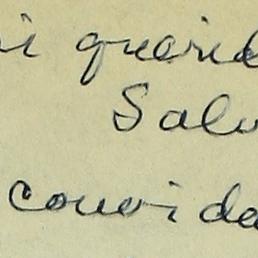 i querid
Salv
convida